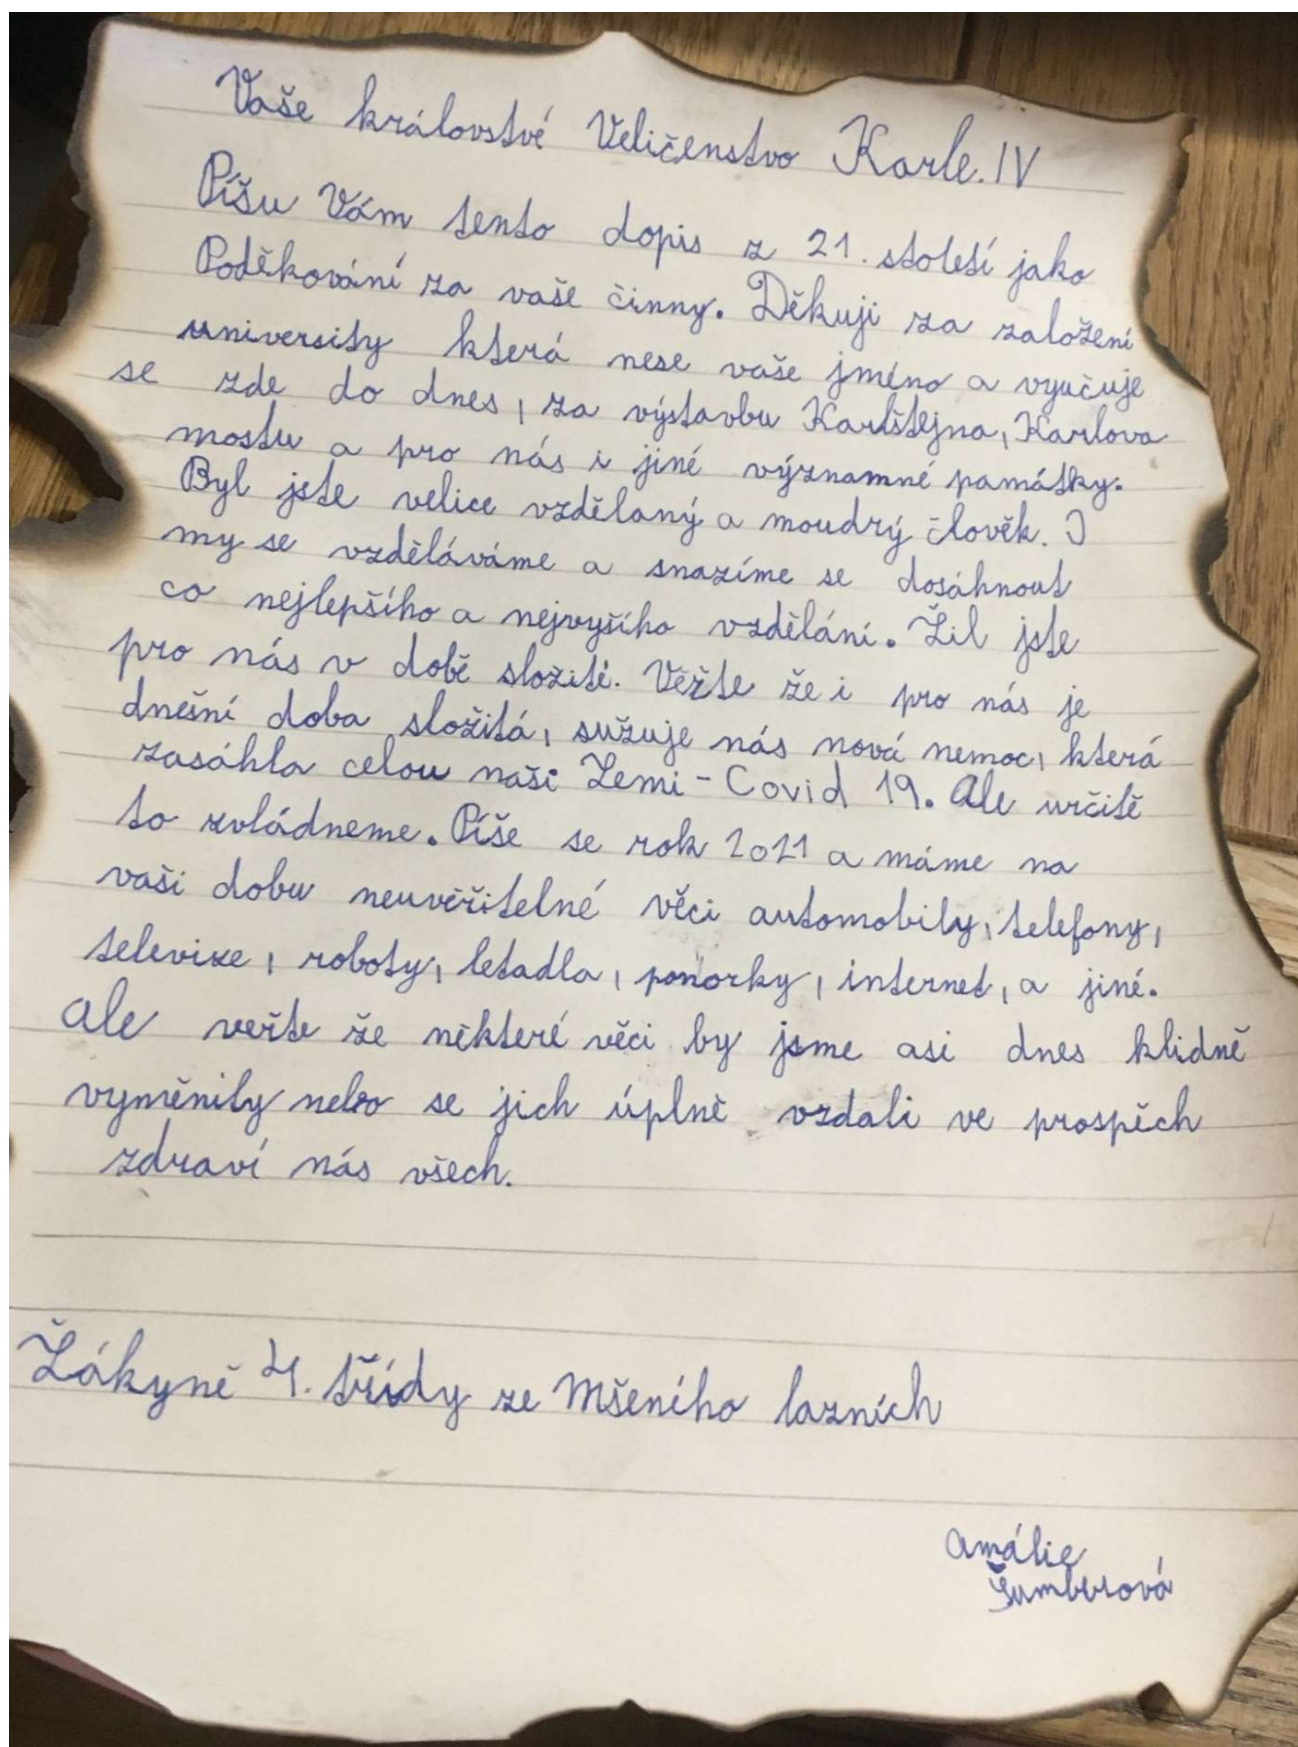 Vaše královstvé Veličenstvo Karle. IV
Píšu Vám tento dopis z 21. století jako
Poděkování za vaše činny. Děkuji za založení
university která nese vaše jméno a vyučuje
se zde do dnes, za výstavbu Karlštejna, Karlova
mostu a pro nás i jiné významné památky.
Byl jste velice vzdělaný a moudrý člověk. I
my se vzděláváme a snazíme se dosáhnout
co nejlepšího a nejvyšího vzdělání. Žil jste
pro nás v době složité. Věřte že i pro nás je
dnešní doba složitá, sužuje nás nová nemoc, která
zasáhla celou naši Zemi - Covid 19. Ale určitě
to zvládneme. Píše se rok 2021 a máme na
vaši dobu neuvěřitelné věci automobily, telefony,
televize, roboty, letadla, ponorky, internet, a jiné.
Ale veřte že některé věci by jsme asi dnes klidně
vyměnily nebo se jich úplně vzdali ve prospěch
zdraví nás všech.
Žákyně 4. třídy ze Mšeného lazních
Amálie